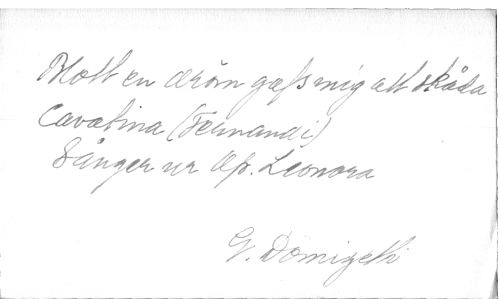 Blott en dröm gafs mig att skåda
Cavatina (Fernand i)
Sånger ur Op. Leonora
G. Donizetti